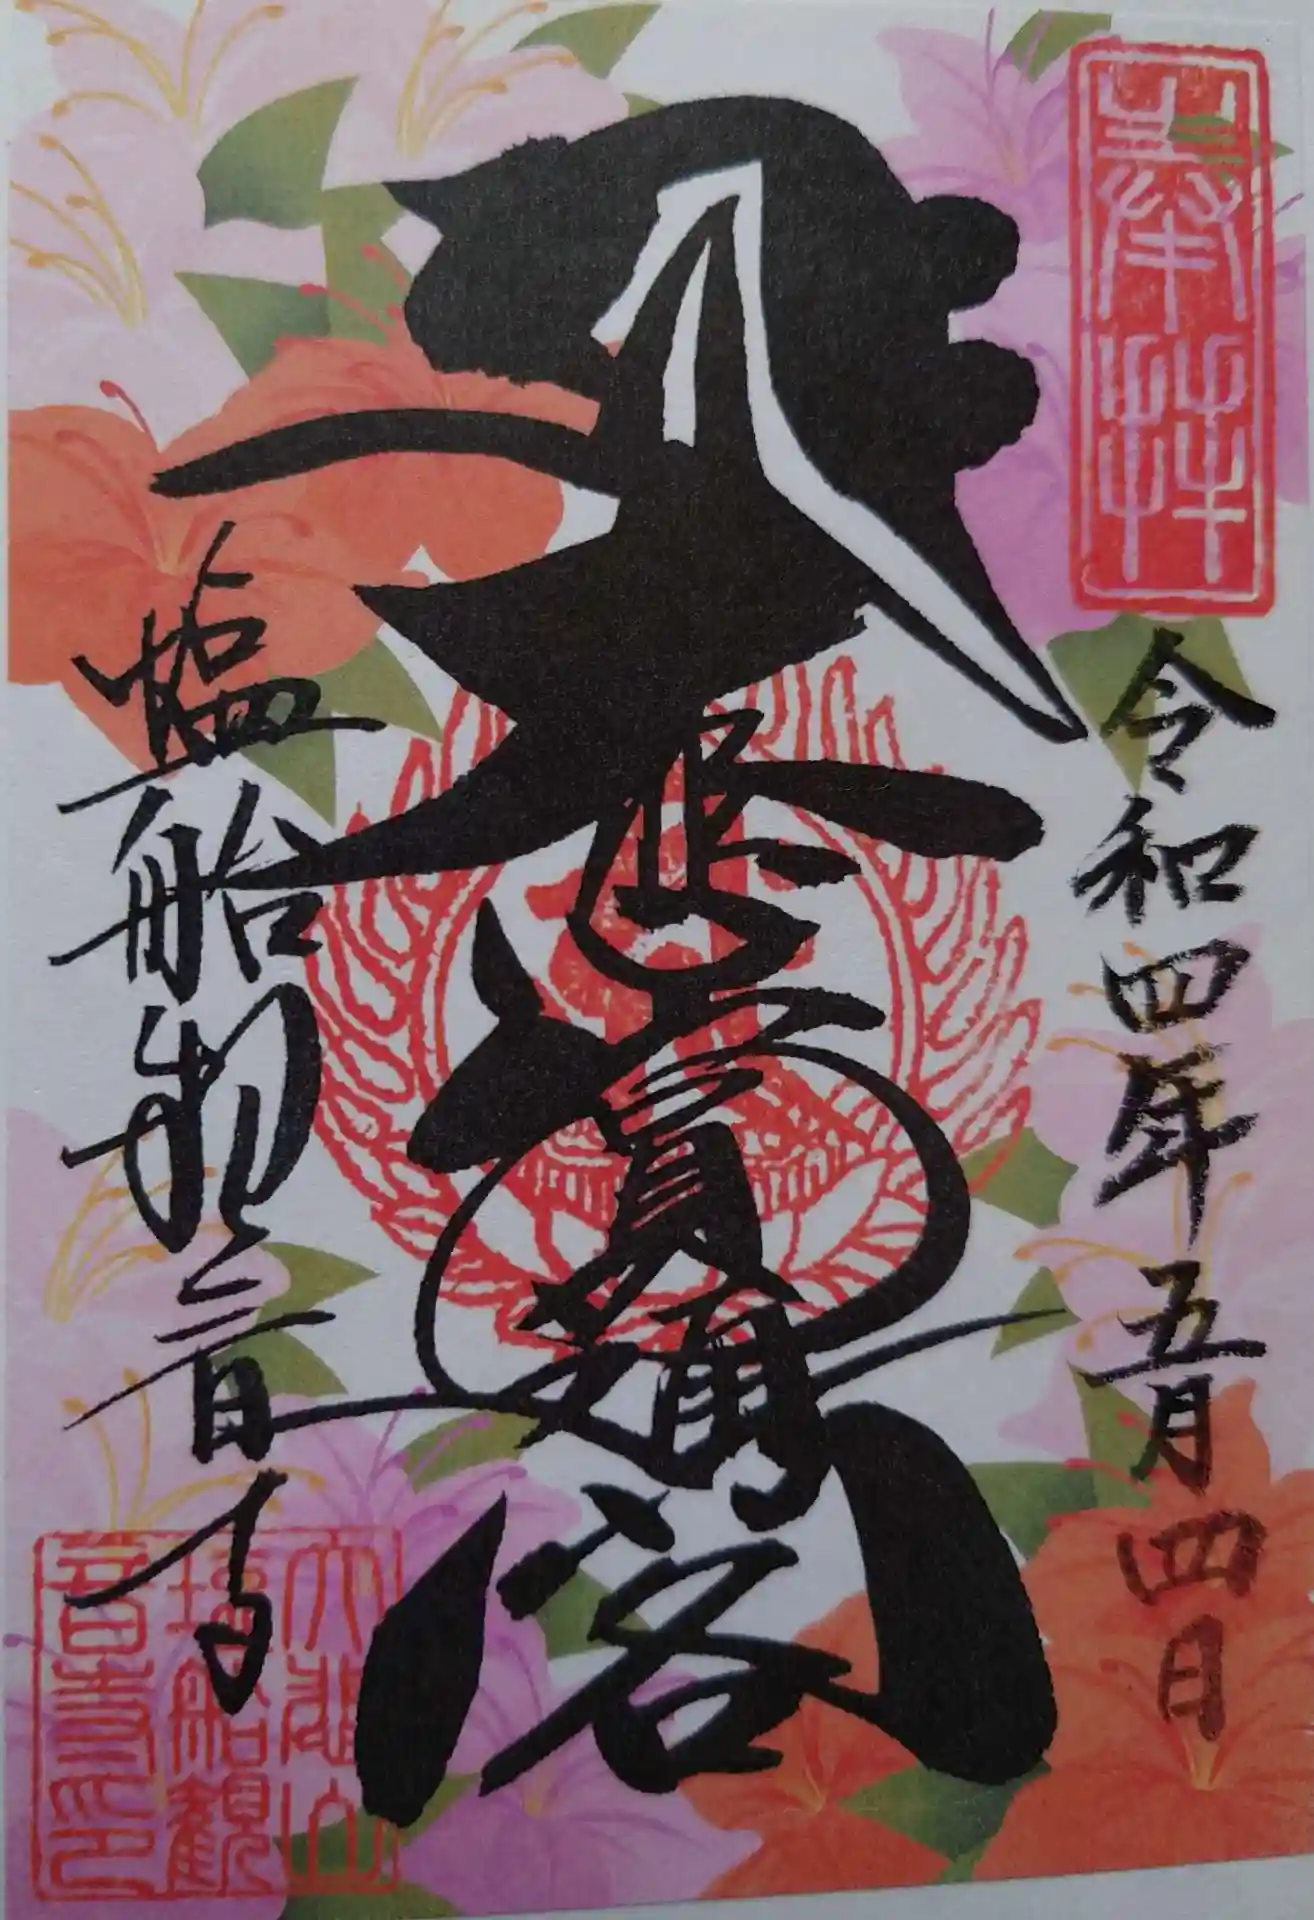 奉拝
令和四年五月四日
大悲圓通閣
塩船観音寺
大悲山
塩船観
音寺印